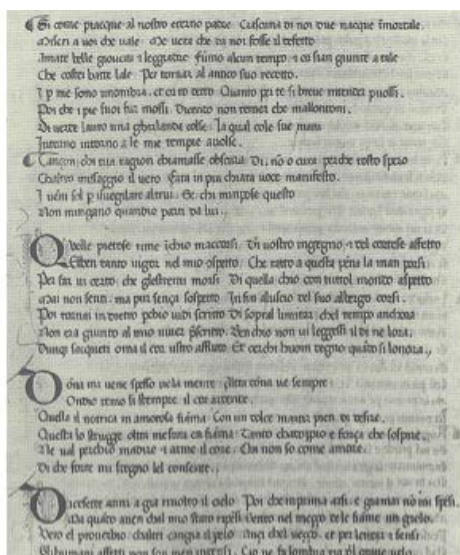 Si come piacque al nostro eterno padre. Ciascuna di noi due nacque imortale.
Miseri a uoi che uale. Me uera che da noi fosse il defecto
Amate belle giouani 7 leggiadre. Fumo alcun tempo. 7 or siam giunte a tale
Che costei batte lale. Per tornar al antico suo recetto.
I p me sono unombra. et or to detto. Quanto per te si breue intender puossi.
Poi che i pie suoi fur mossi. Dicendo non temer che mallontani.
Di uerde lauro una ghirlanda colse. La qual cole sue mani
Intorno intorno a le mie tempie auolse.
Cançon. chi tua ragion chiamasse obscura. Di. nō o cura. perche tosto spero
Chaltro messaggio il uero. Fara in piu chiara uoce manifesto.
I uēni sol p isuegliare altrui. Se chi mimpose questo
Non minganno quandio parti da lui.
Quelle pietose rime ī chio maccorsi. Di uostro ingegno. 7 del cortese affetto
Ebben tanto uigor nel mio conspetto. Che ratto a questa pēna la man porsi
Per far ui certo. che glextremi morsi. Di quella chio con tuttol mondo aspetto
Mai non senti. ma pur sença sospetto. Infin aluscio del suo albergo corsi.
Poi tornai indietro perchio uidi scritto. Di sopral limitar. chel tempo anchora
Non era giunto al mio uiuer pscritto. Ben chio non ui leggessi il di ne lora.
Dunqʒ sacqueti omai il cor uostro afflitto. Et cerchi huom degno. quādo si lonora.
Dōna mi uene spesso ne la mente. Altra dōna ue sempre.
Ondio temo si stempre il core ardente.
Quella il notrica in amorosa fiāma. Con un dolce martir pien di desire.
Questa lo strugge oltra mesura. ca fiāma. Tanto cha doppio e força che sospire.
Ne ual perchio madire 7 arme il core. Chi non so come amore.
Di che forte mi sdegno lel consente.
Dicesette anni a gia riuolto il cielo. Poi che mprima arsi. e giamai nō mi spēsi.
Ma quādo auen chal mio stato ripēsi. Sento nel meçço de le fiāme un gielo.
Vero el prouerbio. chaltri cangia il pelo. Ançi chel ueçço. et per lentar i sensi.
Gli humani affetti non son men intensi. Cio ne fa lombra ria del graue uelo.